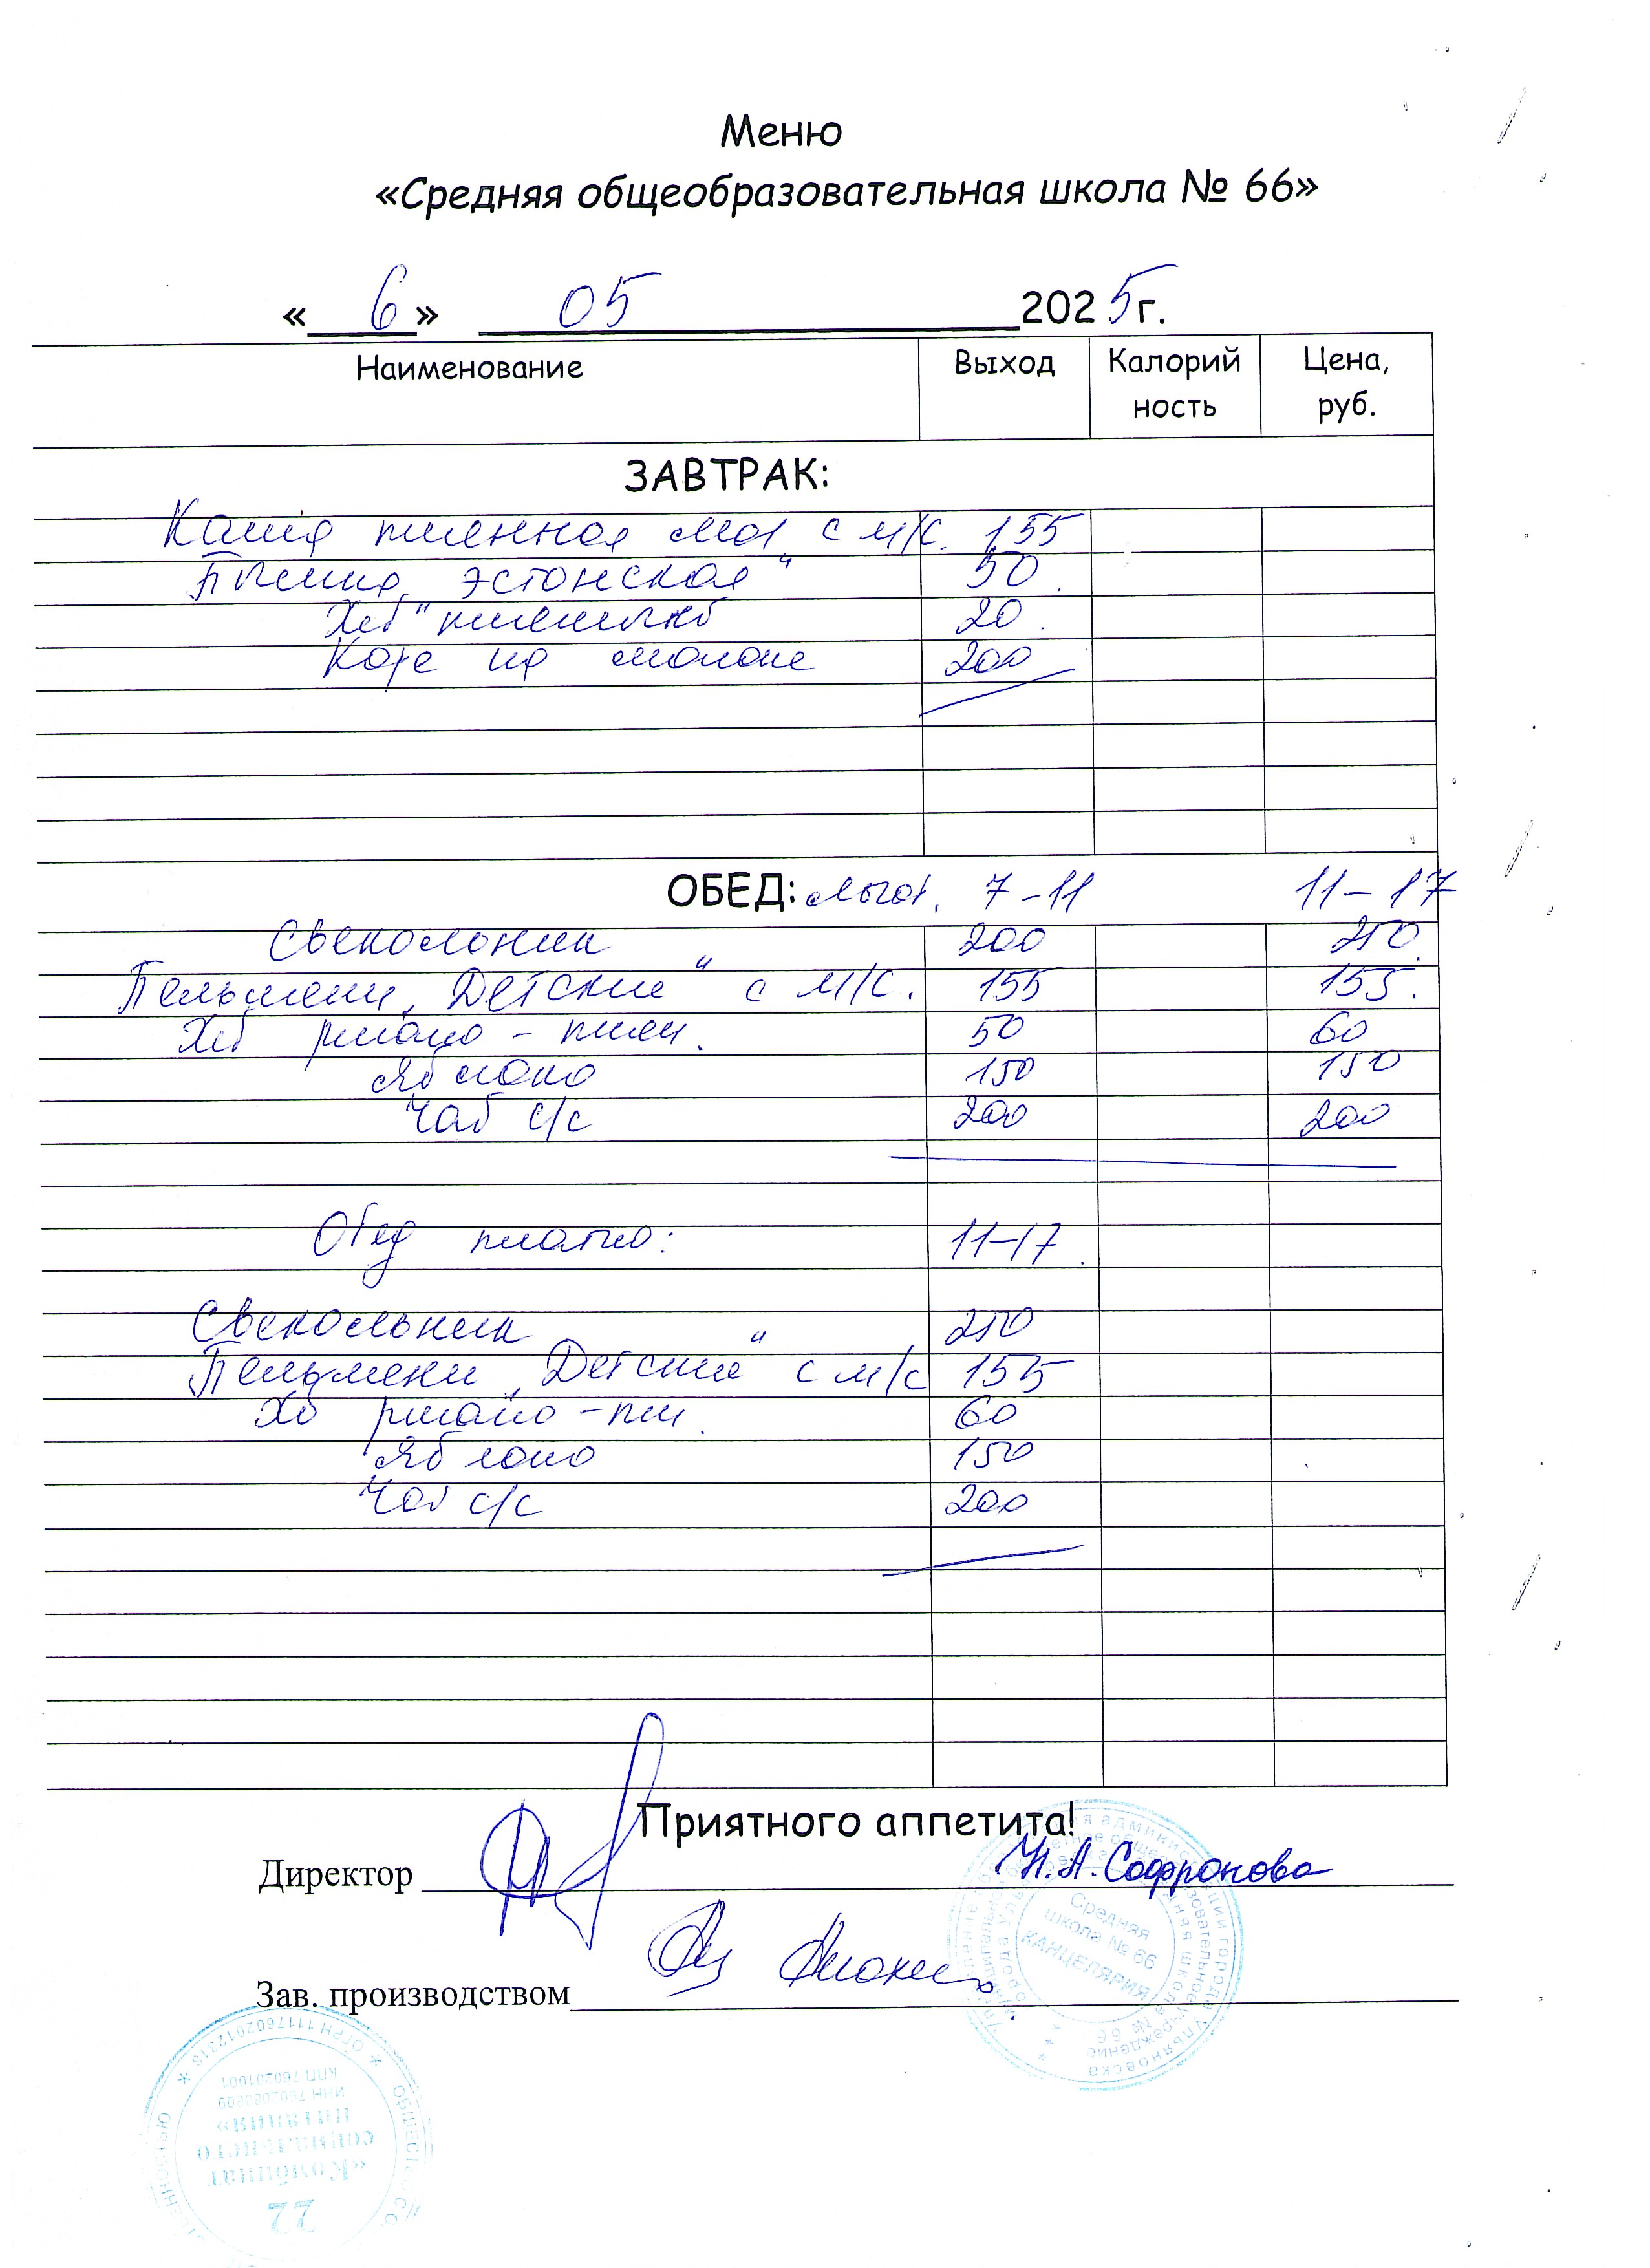 Меню
«Средняя общеобразовательная школа № 66»
« 6 » 05 2025г.
Наименование Выход Калорий ность Цена, руб.
ЗАВТРАК:
Каша пшенная мол с м/с. 155
Пышка „Эстонская" 50
Хлеб пшеничный 20
Кофе на молоке 200
ОБЕД: льгот. 7-11 11-17
Свекольник 200 250
Пельмени „Детские" с м/с. 155 155.
Хлеб ржано-пшен. 50 60
Яблоко 150 150
Чай с/с 200 200
Обед платно: 11-17.
Свекольник 250
Пельмени „Детские" с м/с 155
Хлеб ржано-пш. 60
Яблоко 150
Чай с/с 200
Приятного аппетита!
Директор Н.А. Софронова
Зав. производством
Средняя
школа № 66
КАНЦЕЛЯРИЯ
ОГРН 1117602012318
КПП 760201001
«Комбинат
социального
питания»
22